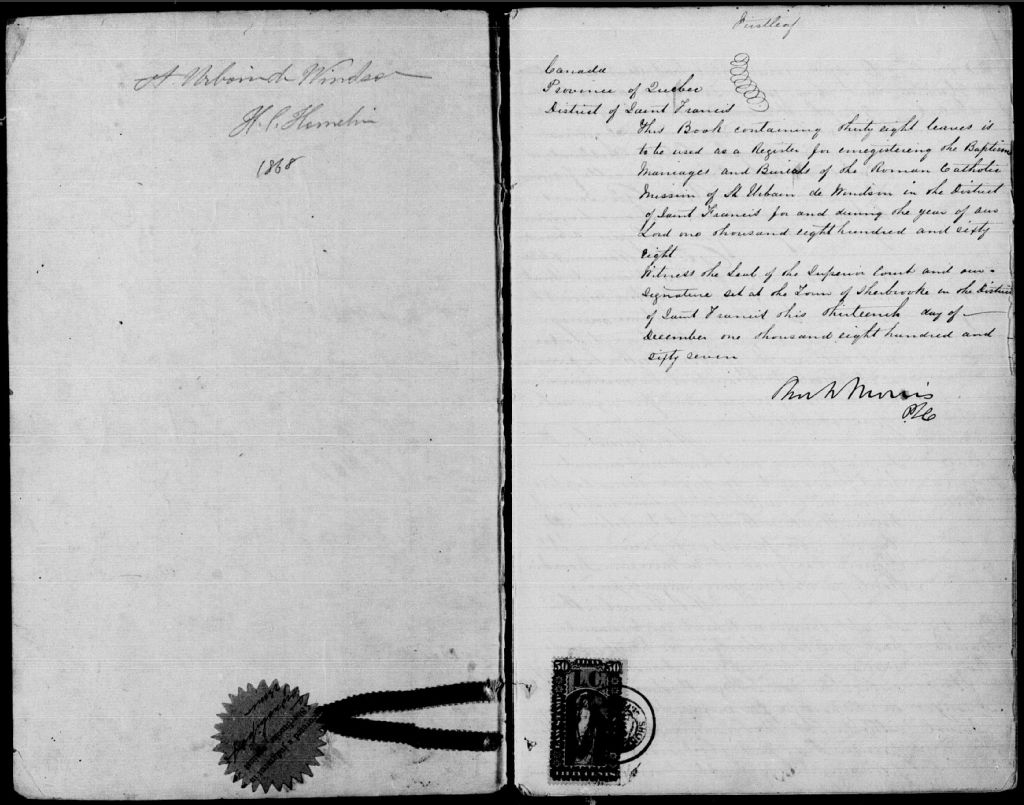 St Urbain de Windsor
H. C. Hamelin
1868
First leaf
Canada
Province of Quebec
District of Saint Francis
This Book containing thirty eight leaves is
to be used as a Register for enregistering the Baptisms
Marriages and Burials of the Roman Catholic
Mission of St Urbain de Windson in the District
of Saint Francis for and during the year of our
Lord one thousand eight hundred and sixty
eight
Witness the Seal of the Superior Court and our
Signature set at the Town of Sherbrooke in the District
of Saint Francis this thirteenth day of
December one thousand eight hundred and
sixty seven
Morris
50 FIFTY 50
LC
LAW STAMP
FIFTY CENTS